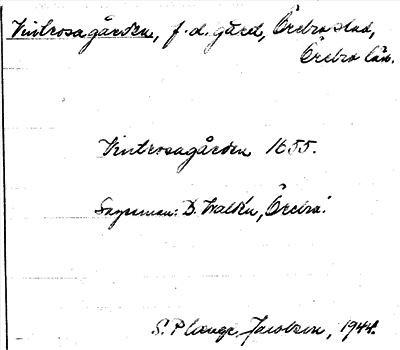 Vintrosagården, f.d. gård, Örebro stad,
Örebro län.
Vintrosagården 1655.
Sagesman: D. Waldén, Örebro.
S. Jacobsen, 1944.